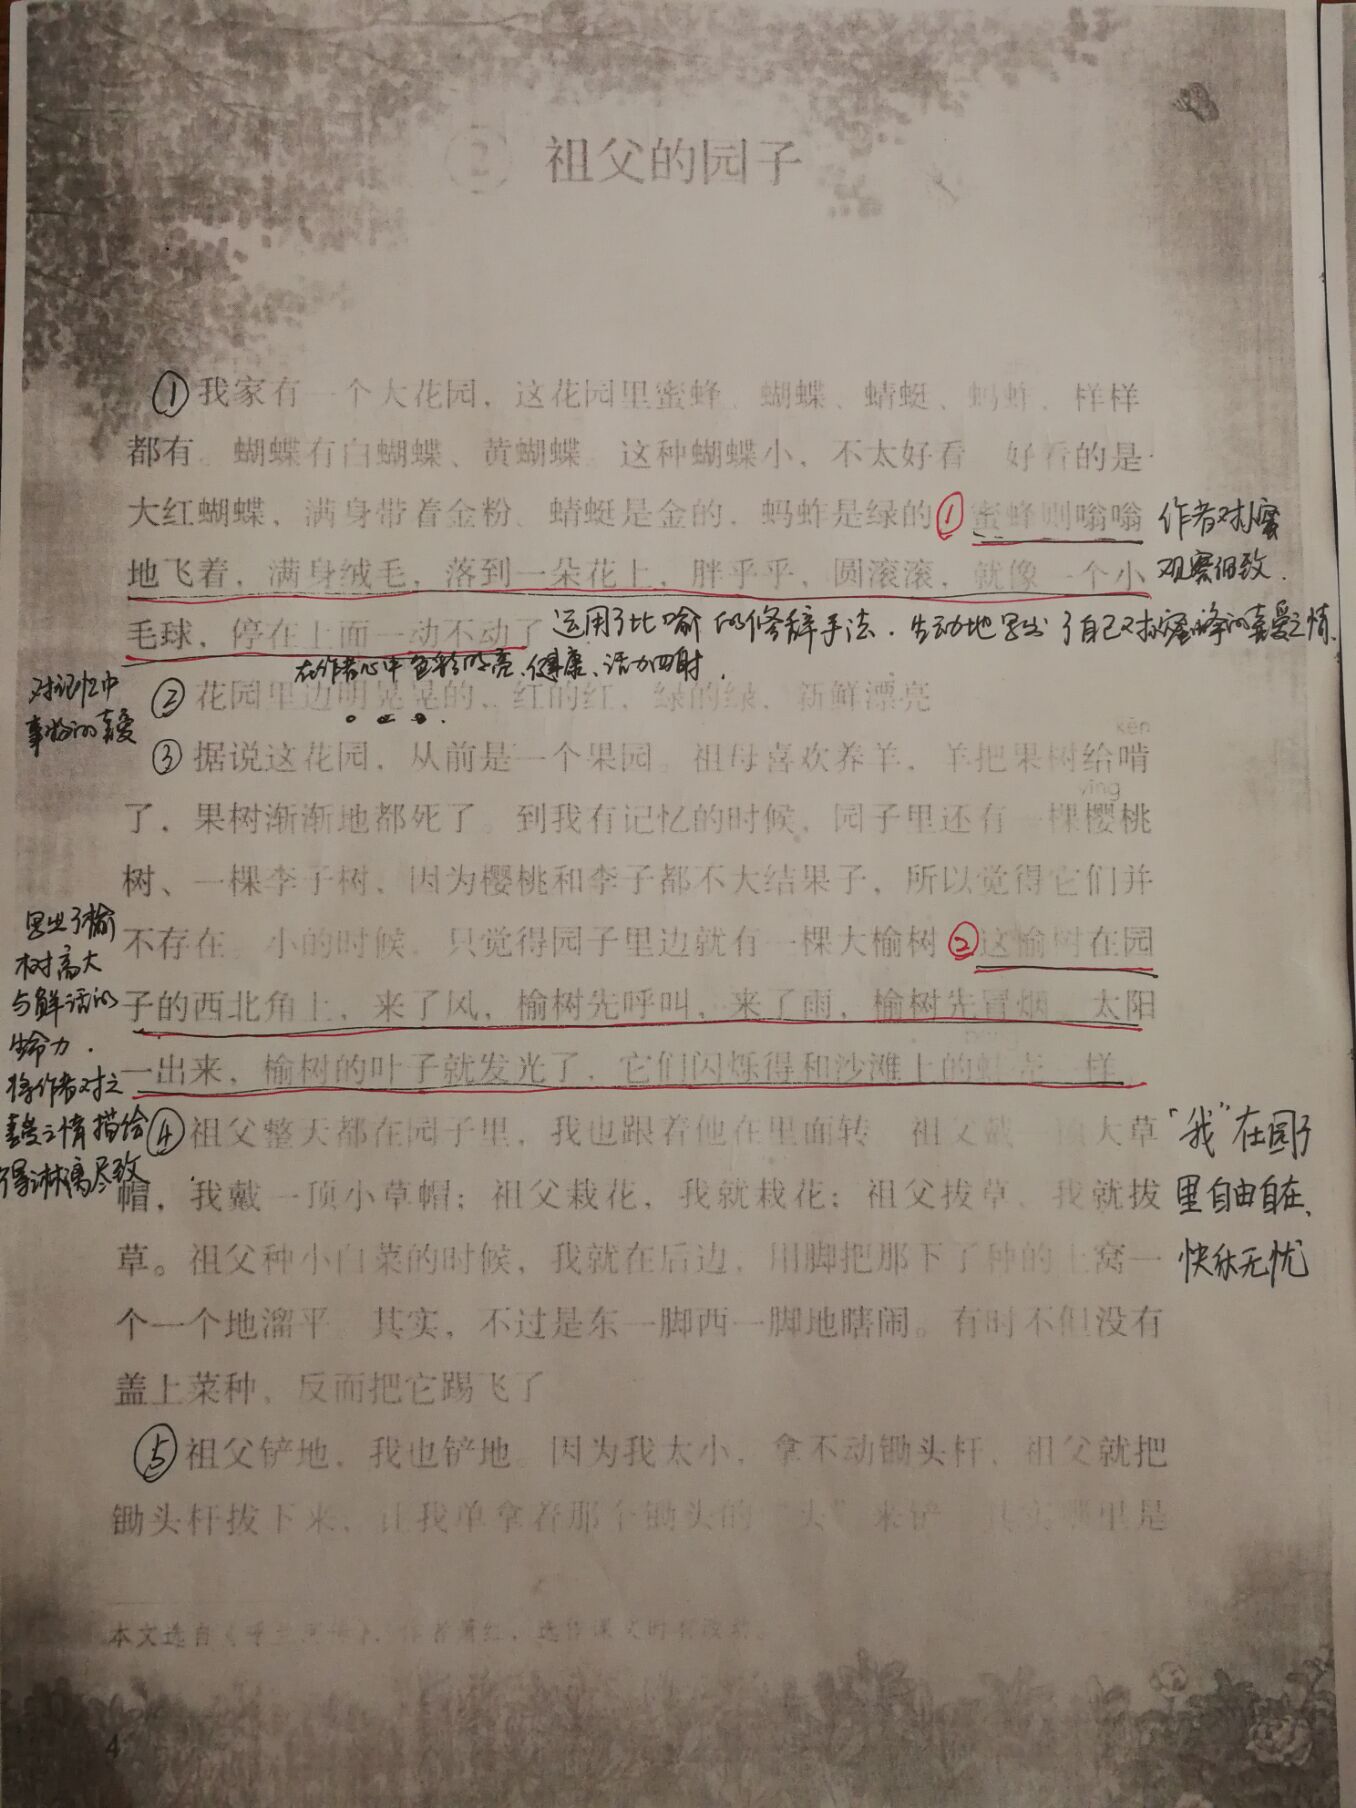 2 祖父的园子
①我家有一个大花园，这花园里蜜蜂、蝴蝶、蜻蜓、蚂蚱，样样
都有。蝴蝶有白蝴蝶、黄蝴蝶。这种蝴蝶小，不太好看。好看的是
大红蝴蝶，满身带着金粉。蜻蜓是金的，蚂蚱是绿的①蜜蜂则嗡嗡
作者对蜜
地飞着，满身绒毛，落到一朵花上，胖乎乎，圆滚滚，就像一个小
观察细致.
毛球，停在上面一动不动了
运用了比喻的修辞手法.生动地写出了自己对蜜蜂的喜爱之情.
在作者心中色彩明亮、健康、活力四射.
对记忆中
事物的喜爱
②花园里边明晃晃的，红的红，绿的绿，新鲜漂亮
kěn
③据说这花园，从前是一个果园。祖母喜欢养羊，羊把果树给啃
yīng
了，果树渐渐地都死了。到我有记忆的时候，园子里还有一棵樱桃
树、一棵李子树，因为樱桃和李子都不大结果子，所以觉得它们并
不存在。小的时候，只觉得园子里边就有一棵大榆树②这榆树在园
子的西北角上，来了风，榆树先呼叫，来了雨，榆树先冒烟。太阳
一出来，榆树的叶子就发光了，它们闪烁得和沙滩上的蚌壳一样
写出了榆
树高大
与鲜活的
生命力.
将作者对之
喜爱之情描绘
得淋漓尽致
④祖父整天都在园子里，我也跟着他在里面转。祖父戴一顶大草
帽，我戴一顶小草帽；祖父栽花，我就栽花；祖父拔草，我就拔
草。祖父种小白菜的时候，我就在后边，用脚把那下了种的土窝一
个一个地溜平。其实，不过是东一脚西一脚地瞎闹。有时不但没有
盖上菜种，反而把它踢飞了
"我"在园子
里自由自在、
快乐无忧
⑤祖父铲地，我也铲地。因为我太小，拿不动锄头杆，祖父就把
锄头杆拔下来，让我单拿着那个锄头的“头”来铲。其实哪里是
本文选自《呼兰河传》，作者萧红，选作课文时有改动。
4